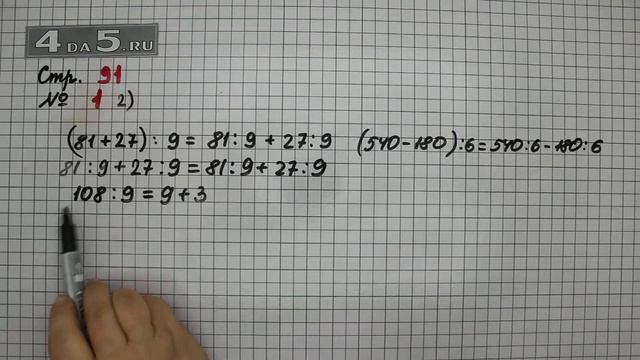 4 DA 5.RU
Стр. 91
№ 1 2)
(81+27) : 9 = 81 : 9 + 27 : 9
(540-180) : 6 = 540 : 6 - 180 : 6
81 : 9 + 27 : 9 = 81 : 9 + 27 : 9
108 : 9 = 9 + 3